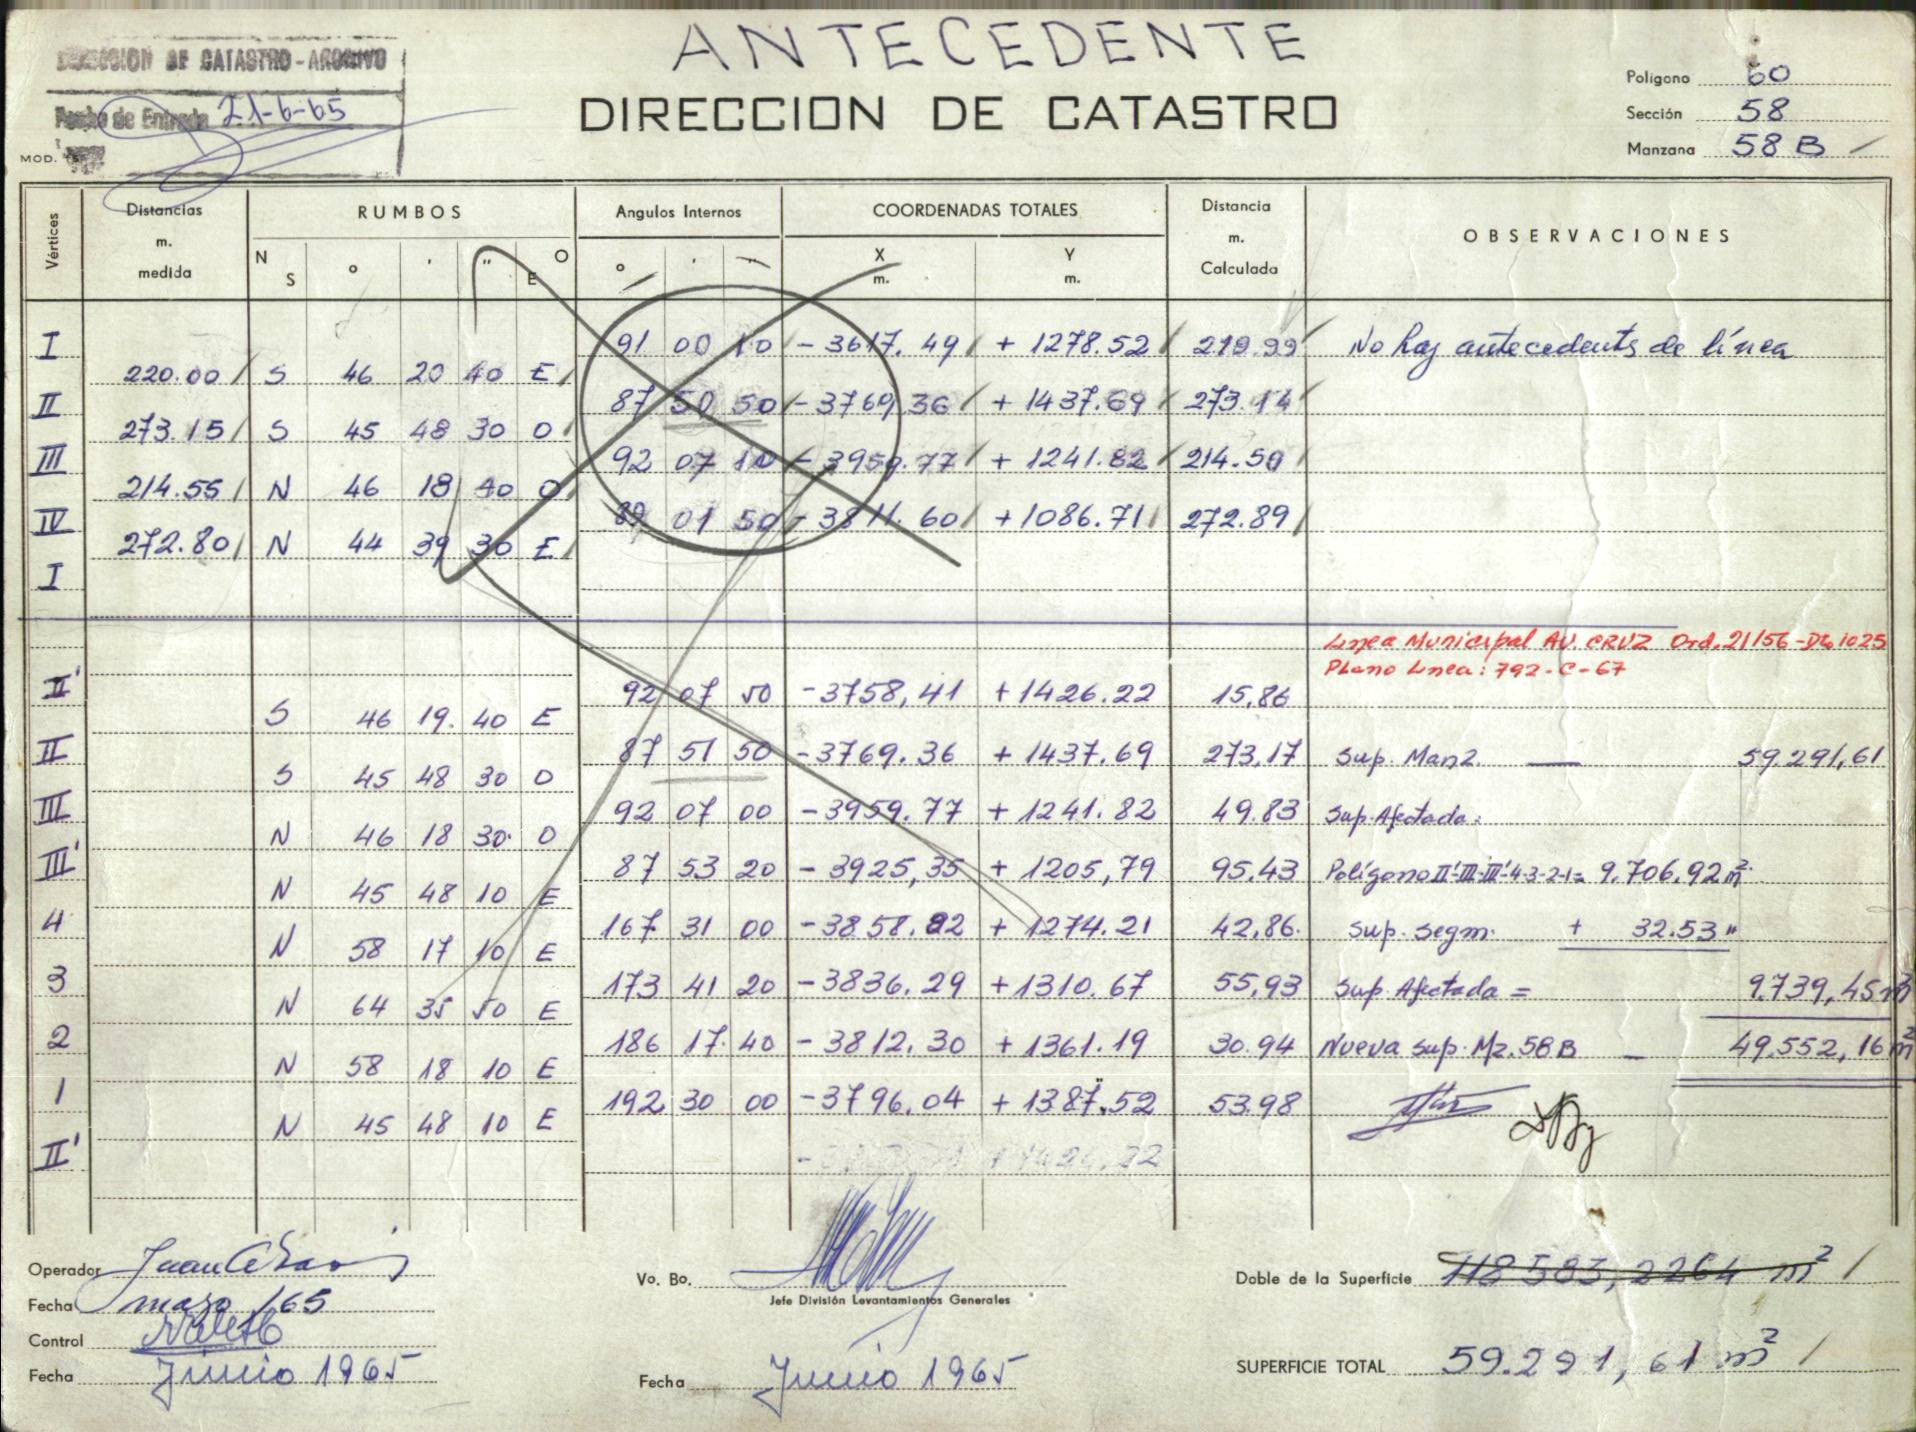 ANTECEDENTE
DIRECCION DE CATASTRO - ARCHIVO
Fecha de Entrada 21-6-65
MOD.
DIRECCION DE CATASTRO
Polígono 60
Sección 58
Manzana 58 B /
Vértices Distancias m. medida RUMBOS N S ° ' " E O Angulos Internos ° ' " COORDENADAS TOTALES X m. Y m. Distancia m. Calculada OBSERVACIONES
I 91 00 10 - 3617.49 + 1278.52 219.99 No hay antecedents de línea
220.00 S 46 20 40 E
II 87 50 50 - 3769.36 + 1437.69 273.14
273.15 S 45 48 30 O
III 92 07 10 - 3959.77 + 1241.82 214.50
214.55 N 46 18 40 O
IV 89 01 50 - 3811.60 + 1086.71 272.89
272.80 N 44 39 30 E
I
Linea Municipal AV. CRUZ Ord. 21/56 - DG 1025
Plano Linea: 792-C-67
II' 92 07 50 - 3758,41 + 1426.22 15,86
S 46 19. 40 E
II 87 51 50 - 3769.36 + 1437.69 273,17 Sup. Manz. — 59.291,61
S 45 48 30 O
III 92 07 00 - 3959.77 + 1241.82 49.83 Sup. Afectada:
N 46 18 30 O
III' 87 53 20 - 3925,35 + 1205,79 95.43 Polígono II'-II-III-III'-4-3-2-1= 9.706,92 m²
N 45 48 10 E
4 167 31 00 - 3858.22 + 1274.21 42,86. Sup. Segm. + 32.53 "
N 58 17 10 E
3 173 41 20 - 3836.29 + 1310.67 55,93 Sup. Afectada = 9.739,45 m²
N 64 35 50 E
2 186 17 40 - 3812.30 + 1361.19 30.94 Nueva Sup. Mz. 58B — 49.552,16 m²
N 58 18 10 E
1 192 30 00 - 3796.04 + 1387.52 53.98
N 45 48 10 E
II'
Operador
Fecha marzo /65
Control
Fecha Junio 1965
Vo. Bo.
Jefe División Levantamientos Generales
Fecha Junio 1965
Doble de la Superficie 118 583,2264 m² /
SUPERFICIE TOTAL 59.291,61 m² /